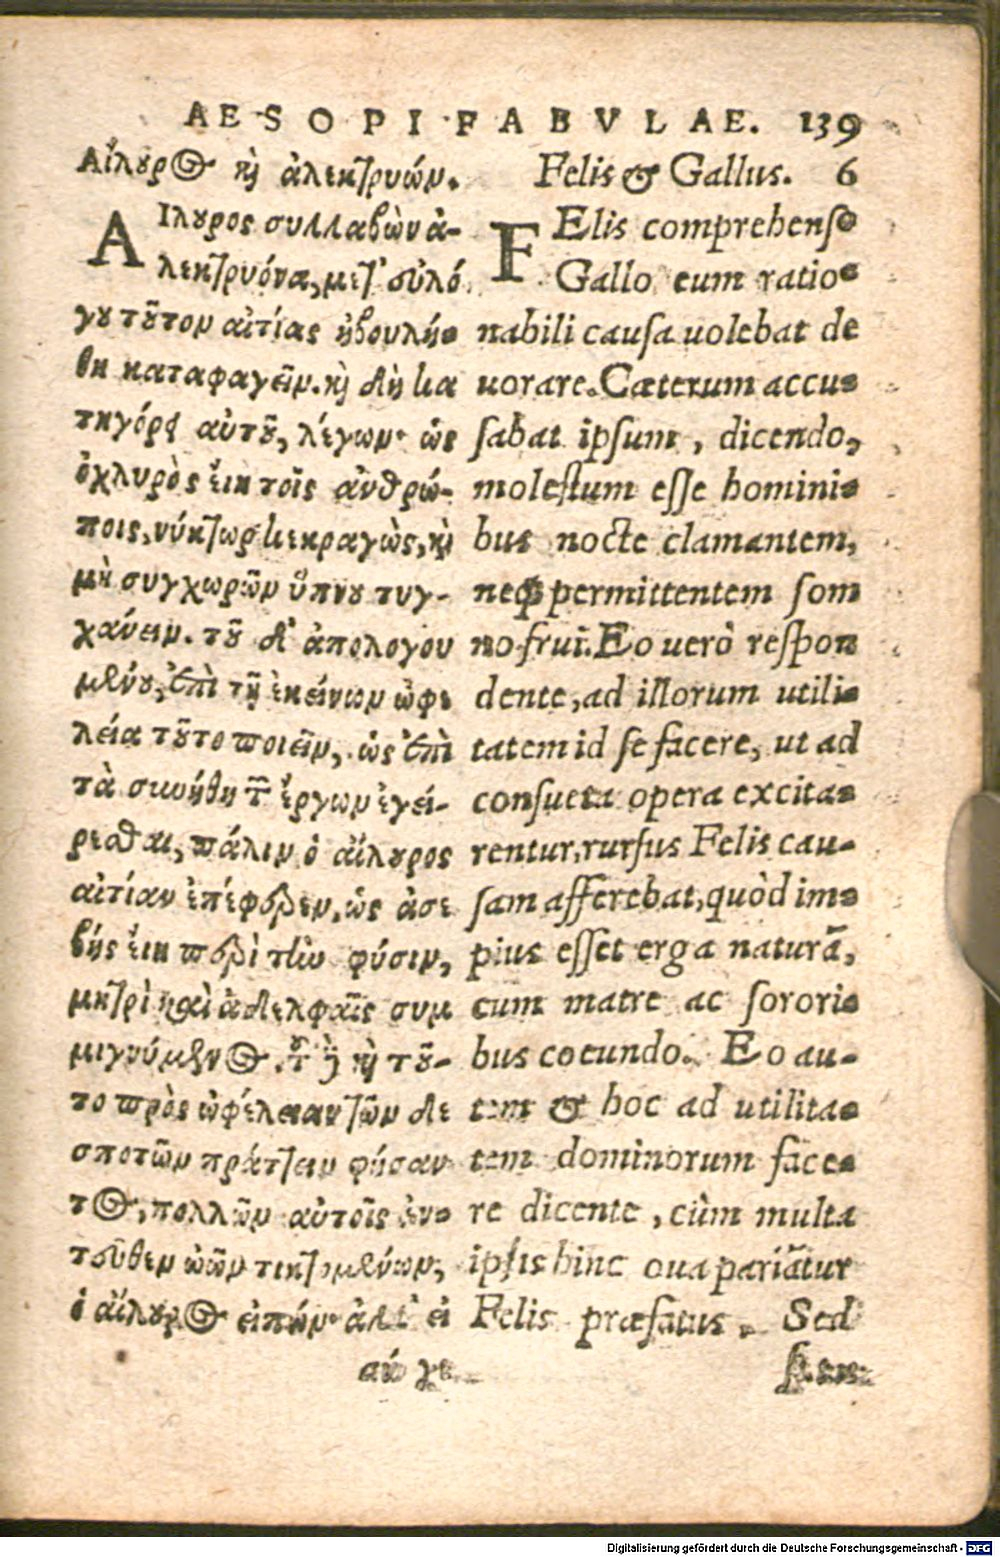 AESOPI FABVLAE. 139
Αἴλουρος καὶ ἀλεκτρυών.
ΑΙλουρος συλλαβὼν ἀ-
λεκτρυόνα, μετ' εὐλό
γου τοῦτον αἰτίας ἠβουλή-
θη καταφαγεῖν. καὶ δὴ κα
τηγόρει αὐτοῦ, λέγων· ὡς
ὀχληρὸς εἴη τοῖς ἀνθρώ-
ποις, νύκτωρ κεκραγὼς, καὶ
μὴ συγχωρῶν ὕπνου τυγ-
χάνειν. τοῦ δ' ἀπολογου
μένου, ἐπὶ τῇ ἐκείνων ὠφε
λείᾳ τοῦτο ποιεῖν, ὡς ἐπὶ
τὰ συνήθη τῶν ἔργων ἐγεί-
ρεσθαι, πάλιν ὁ αἴλουρος
αἰτίαν ἐπέφερεν, ὡς ἀσε
βὴς εἴη περὶ τὴν φύσιν,
μητρὶ καὶ ἀδελφαῖς συμ
μιγνύμενος. τοῦ δὲ καὶ τοῦ-
το πρὸς ὠφέλειαν τῶν δε
σποτῶν πράττειν φήσαν
τος, πολλῶν αὐτοῖς ἐν-
τεῦθεν ὠῶν τικτομένων,
ὁ αἴλουρος εἰπών· ἀλλ' εἰ
σύ γε
Felis & Gallus. 6
FElis comprehenso
Gallo cum ratio-
nabili causa uolebat de
uorare. Cæterum accu-
sabat ipsum, dicendo,
molestum esse homini-
bus nocte clamantem,
neq; permittentem som
no frui. Eo uerò respon
dente, ad illorum utili-
tatem id se facere, ut ad
consueta opera excita-
rentur, rursus Felis cau-
sam afferebat, quòd im-
pius esset erga naturã,
cum matre ac sorori-
bus coeundo. Eo au-
tem & hoc ad utilita-
tem dominorum face-
re dicente, cùm multa
ipsis hinc oua pariãtur
Felis præfatus. Sed